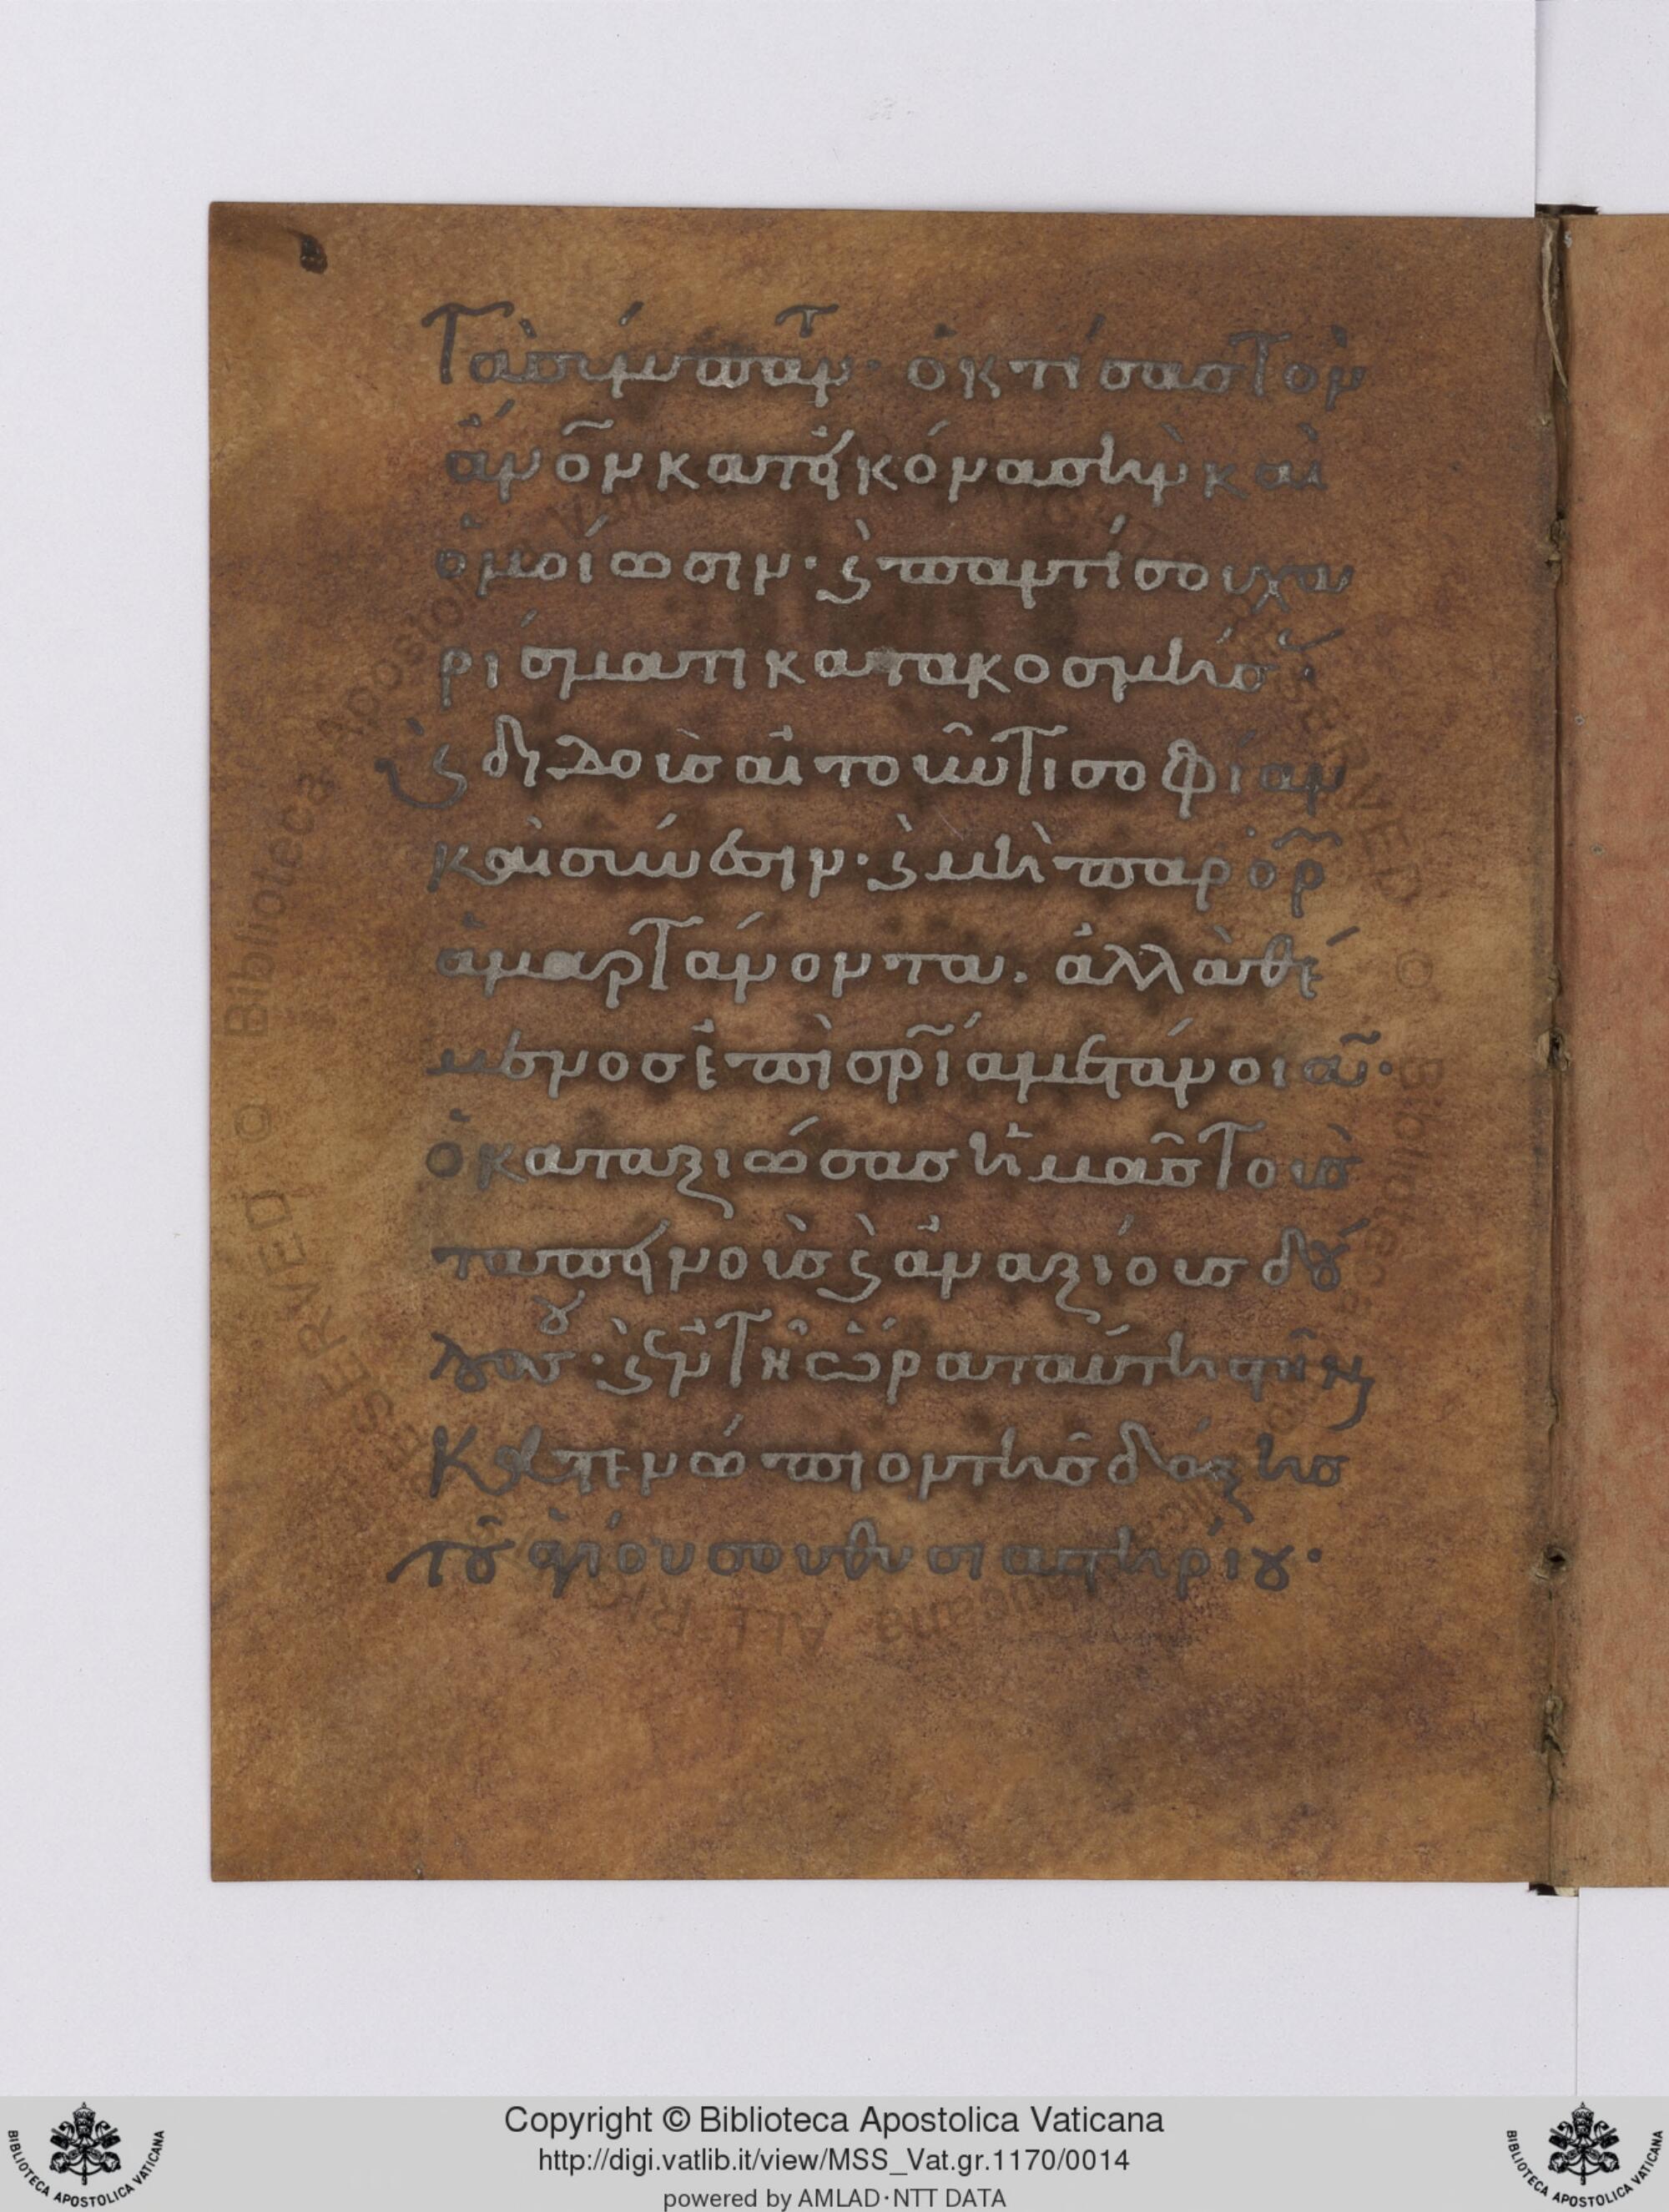 τὰ σύμπαντ· ὁ κτίσας τὸν
ἄνον κατ' εἰκόνα σὴν καὶ
ὁμοίωσιν· ϛ παντί σου χα
ρίσματι κατακοσμήσ
ϛ διδοὺς αἰτοῦντι σοφίαν
καὶ σύνεσιν· ϛ μὴ παρορ
ἁμαρτάνοντα. ἀλλὰ θέ
μενος ἐπὶ σρίαμετάνοιαν·
ὁ καταξιώσας ἡμᾶς τοὺς
ταπεινοὺς ϛ ἀναξίους δού
λους σου· ϛ ἐν τῆ ὥρα ταύτη στῆναι
κατενώπιον τῆς δόξης
τοῦ ἁγίου σου θυσιαστηρίου·
Copyright © Biblioteca Apostolica Vaticana
http://digi.vatlib.it/view/MSS_Vat.gr.1170/0014
powered by AMLAD·NTT DATA
BIBLIOTECA APOSTOLICA VATICANA
BIBLIOTECA APOSTOLICA VATICANA